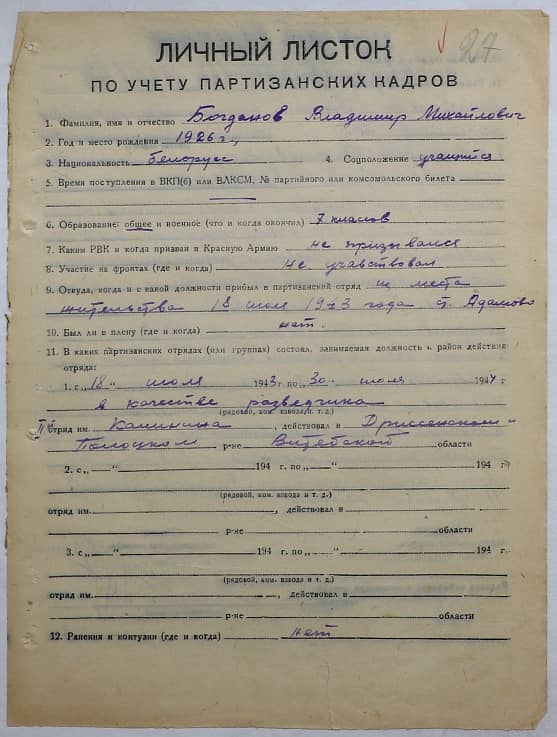 27
ЛИЧНЫЙ ЛИСТОК
ПО УЧЕТУ ПАРТИЗАНСКИХ КАДРОВ
1. Фамилия, имя и отчество Богданов Владимир Михайлович
2. Год и место рождения 1926 г.,
3. Национальность белорус 4. Соцположение учащийся
5. Время поступления в ВКП(б) или ВЛКСМ, № партийного или комсомольского билета
6. Образование: общее и военное (что и когда окончил) 7 классов
7. Каким РВК и когда призван в Красную Армию не призывался
8. Участие на фронтах (где и когда) не учавствовал
9. Откуда, когда и с какой должности прибыл в партизанский отряд из места
жительства 18 июля 1943 года д. Адамово
10. Был ли в плену (где и когда) нет.
11. В каких партизанских отрядах (или группах) состоял, занимаемая должность и район действия
отряда:
1. с „18“ июля 1943 г. по „30“ июля 1944 г.
в качестве разведчика
(рядовой, ком. взвода и т. д.)
отряд им. Калинина, действовал в Дриссенском и
Полоцком р-не Витебской области
2. с „—“ 194 г. по „—“ 194 г.
(рядовой, ком. взвода и т. д.)
отряд им. , действовал в
р-не области
3. с „—“ 194 г. по „—“ 194 г.
(рядовой, ком. взвода и т. д.)
отряд им. , действовал в
р-не области
12. Ранения и контузии (где и когда) нет